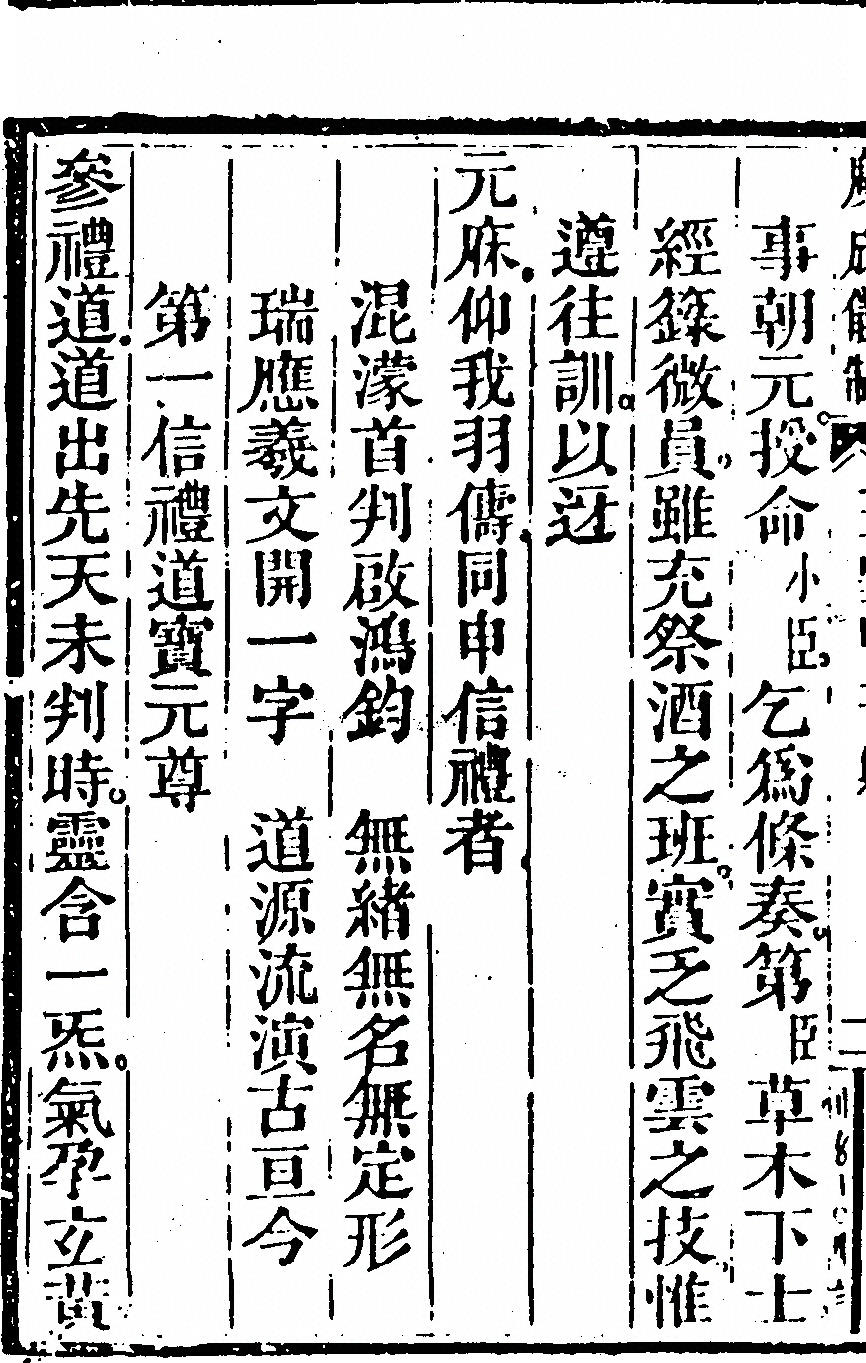 廣成儀制
事朝元投命小臣乞爲條奏第臣草木下士
經籙微員雖充祭酒之班實乏飛雲之技惟
遵往訓以迓
元庥仰我羽儔同申信禮者
混濛首判啟鴻鈞　無緒無名無定形
瑞應羲文開一字　道源流演古亘今
第一信禮道寶元尊
參禮道道出先天未判時靈含一炁氣孕立黄